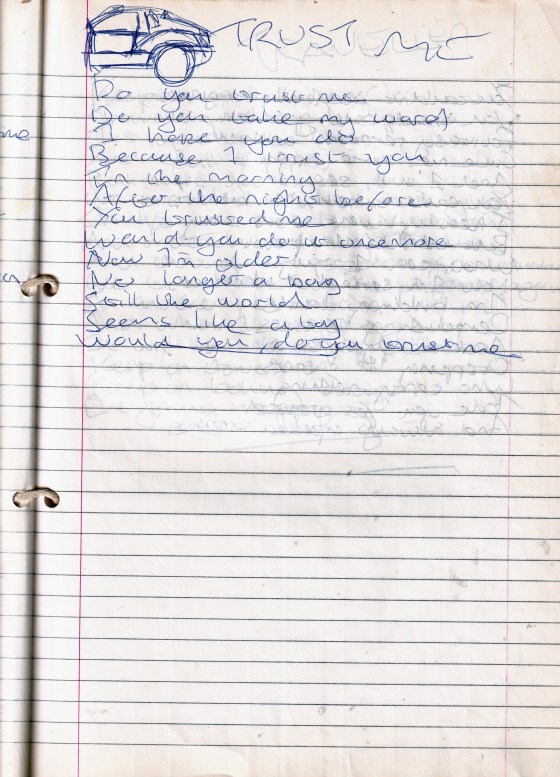 TRUST ME
Do you trust me
Do you take my word
I hope you do
Because I trust you
In the morning
After the night before
You trusted me
Would you do it once more
Now I'm older
No longer a boy
Still the world
Seems like a toy
Would you, do you trust me
me